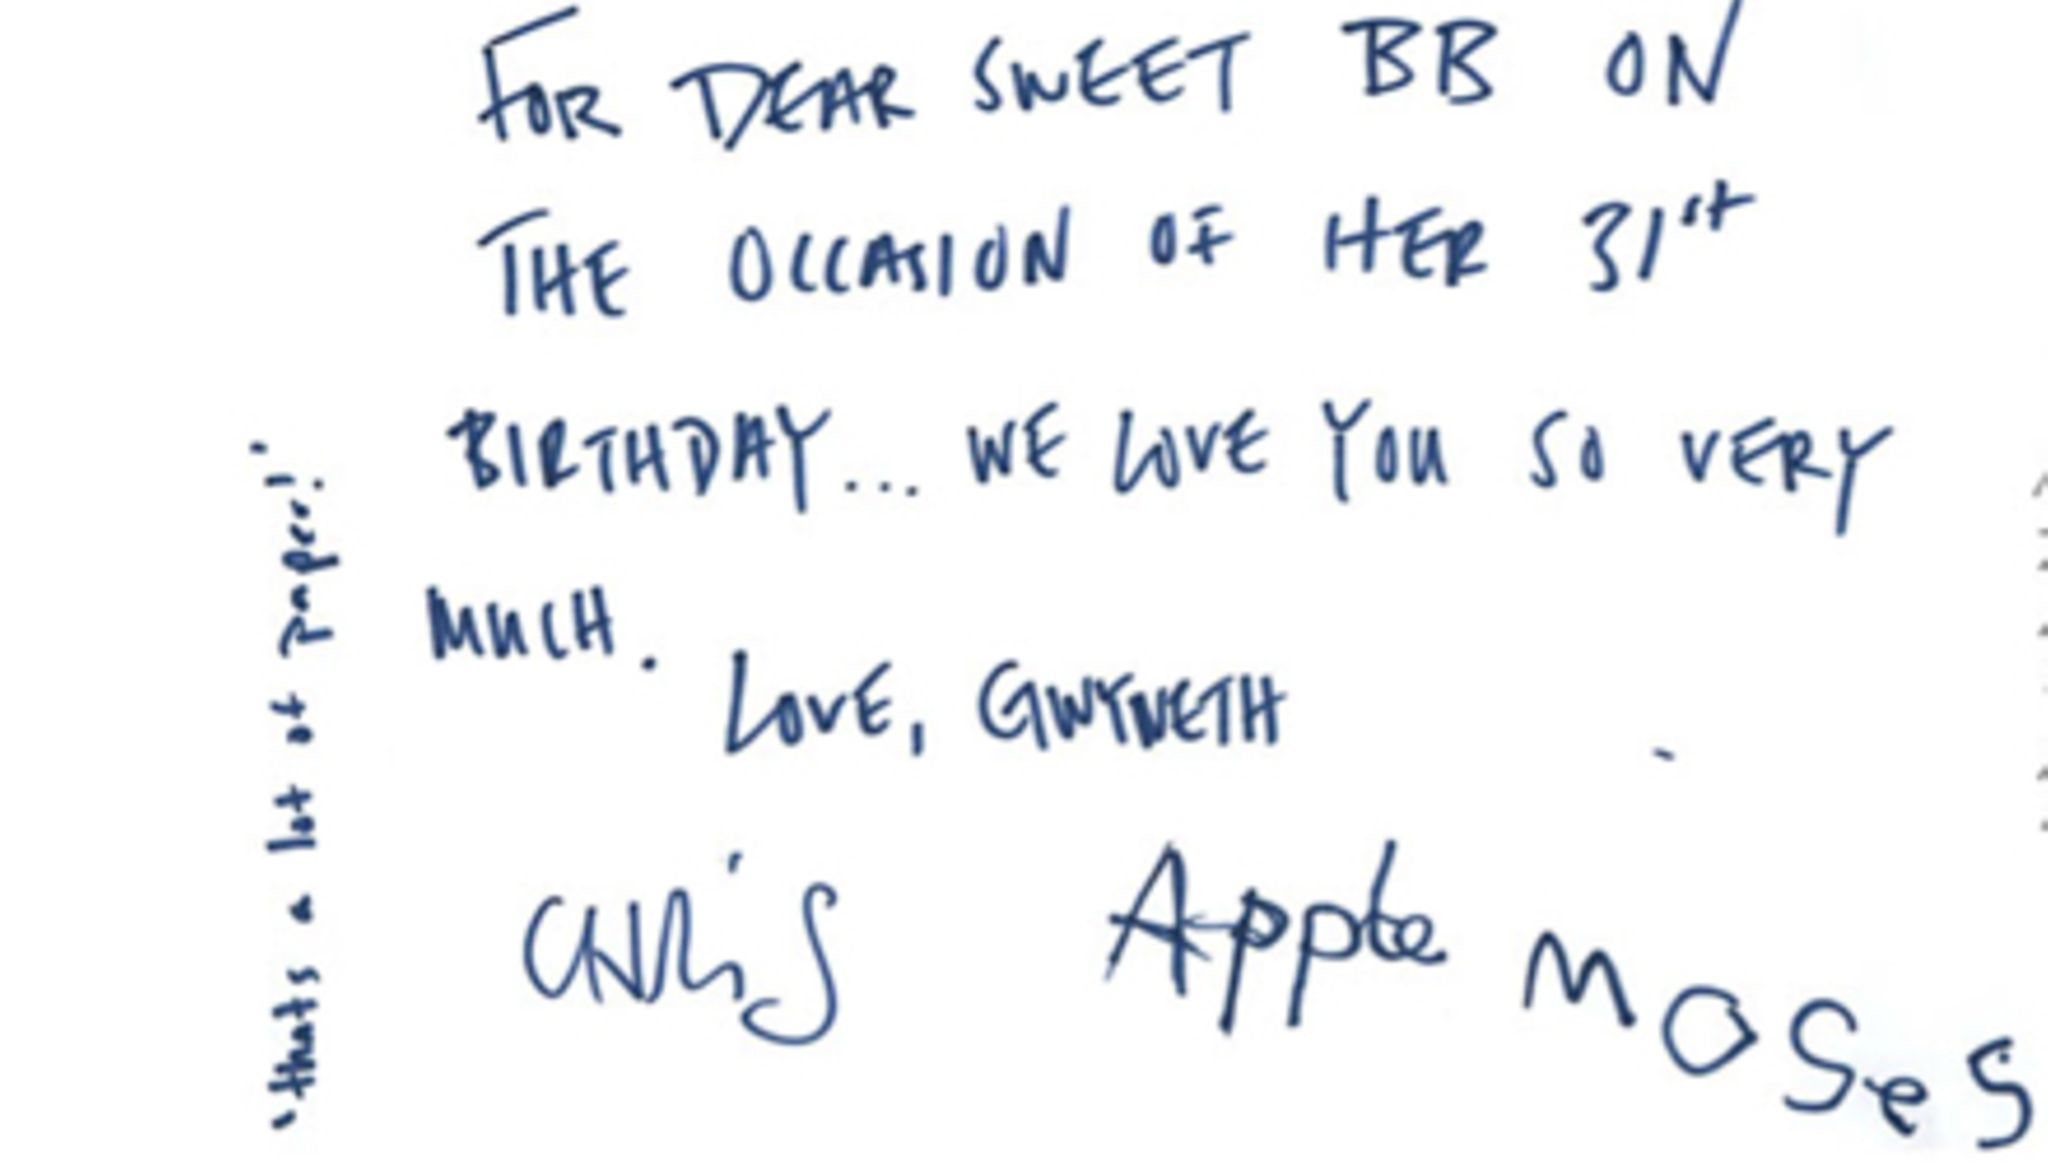 FOR DEAR SWEET BB ON
THE OCCASION OF HER 31st
BIRTHDAY... WE LOVE YOU SO VERY
MUCH.
LOVE, GWYNETH
CHRIS Apple MOSeS
'thats a lot of paper!'